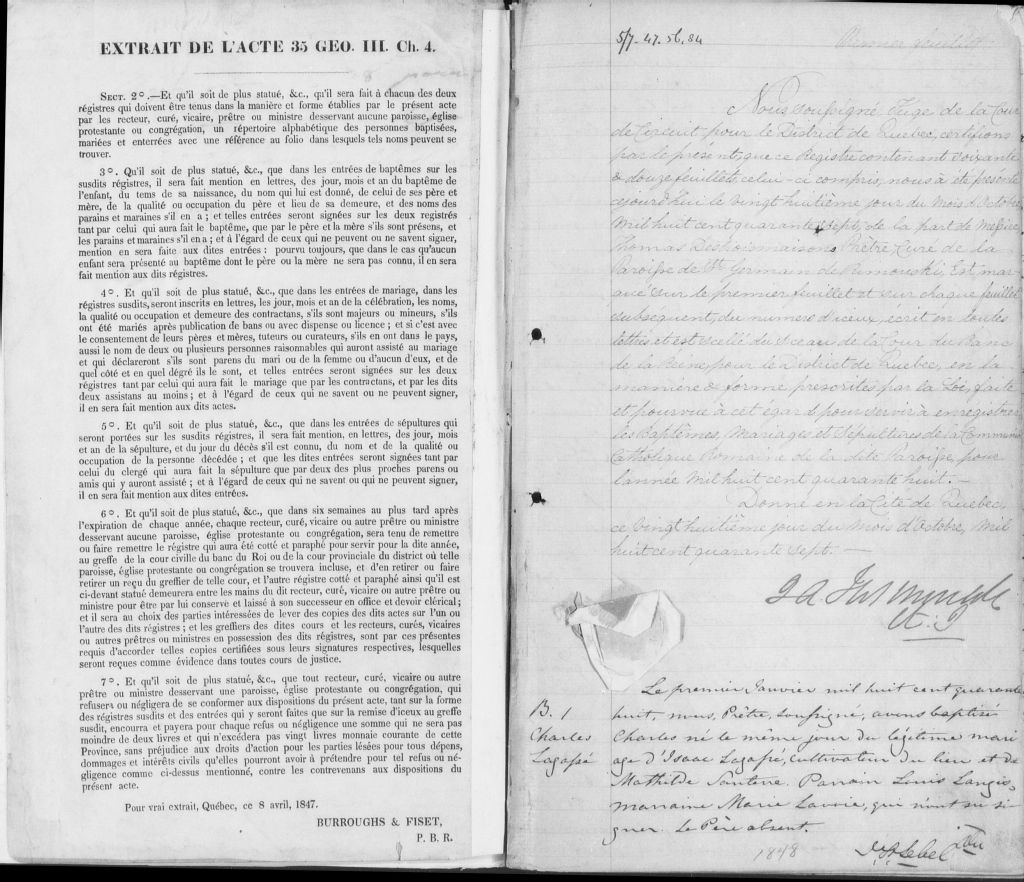 EXTRAIT DE L'ACTE 35 GEO. III. Ch. 4.
SECT. 2°.—Et qu'il soit de plus statué, &c., qu'il sera fait à chacun des deux
régistres qui doivent être tenus dans la manière et forme établies par le présent acte
par les recteur, curé, vicaire, prêtre ou ministre desservant aucune paroisse, église
protestante ou congrégation, un répertoire alphabétique des personnes baptisées,
mariées et enterrées avec une référence au folio dans lesquels tels noms peuvent se
trouver.
3°. Qu'il soit de plus statué, &c., que dans les entrées de baptêmes sur les
susdits régistres, il sera fait mention en lettres, des jour, mois et an du baptême de
l'enfant, du tems de sa naissance, du nom qui lui est donné, de celui de ses père et
mère, de la qualité ou occupation du père et lieu de sa demeure, et des noms des
parains et maraines s'il en a ; et telles entrées seront signées sur les deux registrés
tant par celui qui aura fait le baptême, que par le père et la mère s'ils sont présens, et
les parains et maraines s'il en a ; et à l'égard de ceux qui ne peuvent ou ne savent signer,
mention en sera faite aux dites entrées : pourvu toujours, que dans le cas qu'aucun
enfant sera présenté au baptême dont le père ou la mère ne sera pas connu, il en sera
fait mention aux dits régistres.
4°. Et qu'il soit de plus statué, &c., que dans les entrées de mariage, dans les
régistres susdits, seront inscrits en lettres, les jour, mois et an de la célébration, les noms,
la qualité ou occupation et demeure des contractans, s'ils sont majeurs ou mineurs, s'ils
ont été mariés après publication de bans ou avec dispense ou licence ; et si c'est avec
le consentement de leurs pères et mères, tuteurs ou curateurs, s'ils en ont dans le pays,
aussi le nom de deux ou plusieurs personnes raisonnables qui auront assisté au mariage
et qui déclareront s'ils sont parens du mari ou de la femme ou d'aucun d'eux, et de
quel côté et en quel dégré ils le sont, et telles entrées seront signées sur les deux
régistres tant par celui qui aura fait le mariage que par les contractans, et par les dits
deux assistans au moins ; et à l'égard de ceux qui ne savent ou ne peuvent signer,
il en sera fait mention aux dits actes.
5°. Et qu'il soit de plus statué, &c., que dans les entrées de sépultures qui
seront portées sur les susdits régistres, il sera fait mention, en lettres, des jour, mois
et an de la sépulture, et du jour du décès s'il est connu, du nom et de la qualité ou
occupation de la personne décédée ; et que les dites entrées seront signées tant par
celui du clergé qui aura fait la sépulture que par deux des plus proches parens ou
amis qui y auront assisté ; et à l'égard de ceux qui ne savent ou qui ne peuvent signer,
il en sera fait mention aux dites entrées.
6°. Et qu'il soit de plus statué, &c., que dans six semaines au plus tard après
l'expiration de chaque année, chaque recteur, curé, vicaire ou autre prêtre ou ministre
desservant aucune paroisse, église protestante ou congrégation, sera tenu de remettre
ou faire remettre le régistre qui aura été cotté et paraphé pour servir pour la dite année,
au greffe de la cour civille du banc du Roi ou de la cour provinciale du district où telle
paroisse, église protestante ou congrégation se trouvera incluse, et d'en retirer ou faire
retirer un reçu du greffier de telle cour, et l'autre régistre cotté et paraphé ainsi qu'il est
ci-devant statué demeurera entre les mains du dit recteur, curé, vicaire ou autre prêtre ou
ministre pour être par lui conservé et laissé à son successeur en office et devoir clérical ;
et il sera au choix des parties intéressées de lever des copies des dits actes sur l'un ou
l'autre des dits régistres ; et les greffiers des dites cours et les recteurs, curés, vicaires
ou autres prêtres ou ministres en possession des dits régistres, sont par ces présentes
requis d'accorder telles copies certifiées sous leurs signatures respectives, lesquelles
seront reçues comme évidence dans toutes cours de justice.
7°. Et qu'il soit de plus statué, &c., que tout recteur, curé, vicaire ou autre
prêtre ou ministre desservant une paroisse, église protestante ou congrégation, qui
refusera ou négligera de se conformer aux dispositions du présent acte, tant sur la forme
des régistres susdits et des entrées qui y seront faites que sur la remise d'iceux au greffe
susdit, encourra et payera pour chaque refus ou négligence une somme qui ne sera pas
moindre de deux livres et qui n'excédera pas vingt livres monnaie courante de cette
Province, sans préjudice aux droits d'action pour les parties lésées pour tous dépens,
dommages et intérêts civils qu'elles pourront avoir à prétendre pour tel refus ou né-
gligence comme ci-dessus mentionné, contre les contrevenans aux dispositions du
présent acte.
Pour vrai extrait, Québec, ce 8 avril, 1847.
BURROUGHS & FISET,
P. B. R.
5/7-47.56.84
Premier feuillet
Nous soussigné Juge de la Cour
de Circuit pour le District de Quebec, certifions
par le présent, que ce Registre contenant soixante
& douze feuillets celui-ci compris, nous a été présenté
cejourd'hui le vingt huitième jour du Mois d'Octobre
Mil huit cent quarante Sept, de la part de Messire
Thomas Destroismaisons Prêtre Curé de la
Paroisse de St Germain de Rimouski, Est mar-
qué sur le premier feuillet et sur chaque feuillet
subsequent, du numero d'iceux, ecrit en toutes
lettres et est scellé du Sceau de la Cour du Banc
de la Reine, pour le District de Quebec, en la
manière & forme prescrites par la Loi, faite
et pourvue à cet égard pour servir à enregistrer
les Baptêmes, Mariages et Sépultures de la Communion
Catholique Romaine de la dite Paroisse, pour
l'année Mil huit cent quarante huit. —
Donné en la Cité de Quebec,
ce vingt huitième jour du Mois d'Octobre, Mil
huit cent quarante Sept. —
Le premier Janvier mil huit cent quarante
B. 1
Charles
Lagassé
huit, nous, Prêtre, soussigné, avons baptisé
Charles né le même jour du légitime mari
age d'Isaac Lagassé, cultivateur du lieu et de
Mathilde Santerre. Parrain Louis Langis,
marraine Marie Lavoie, qui n'ont su si-
gner. Le Père absent.
1848